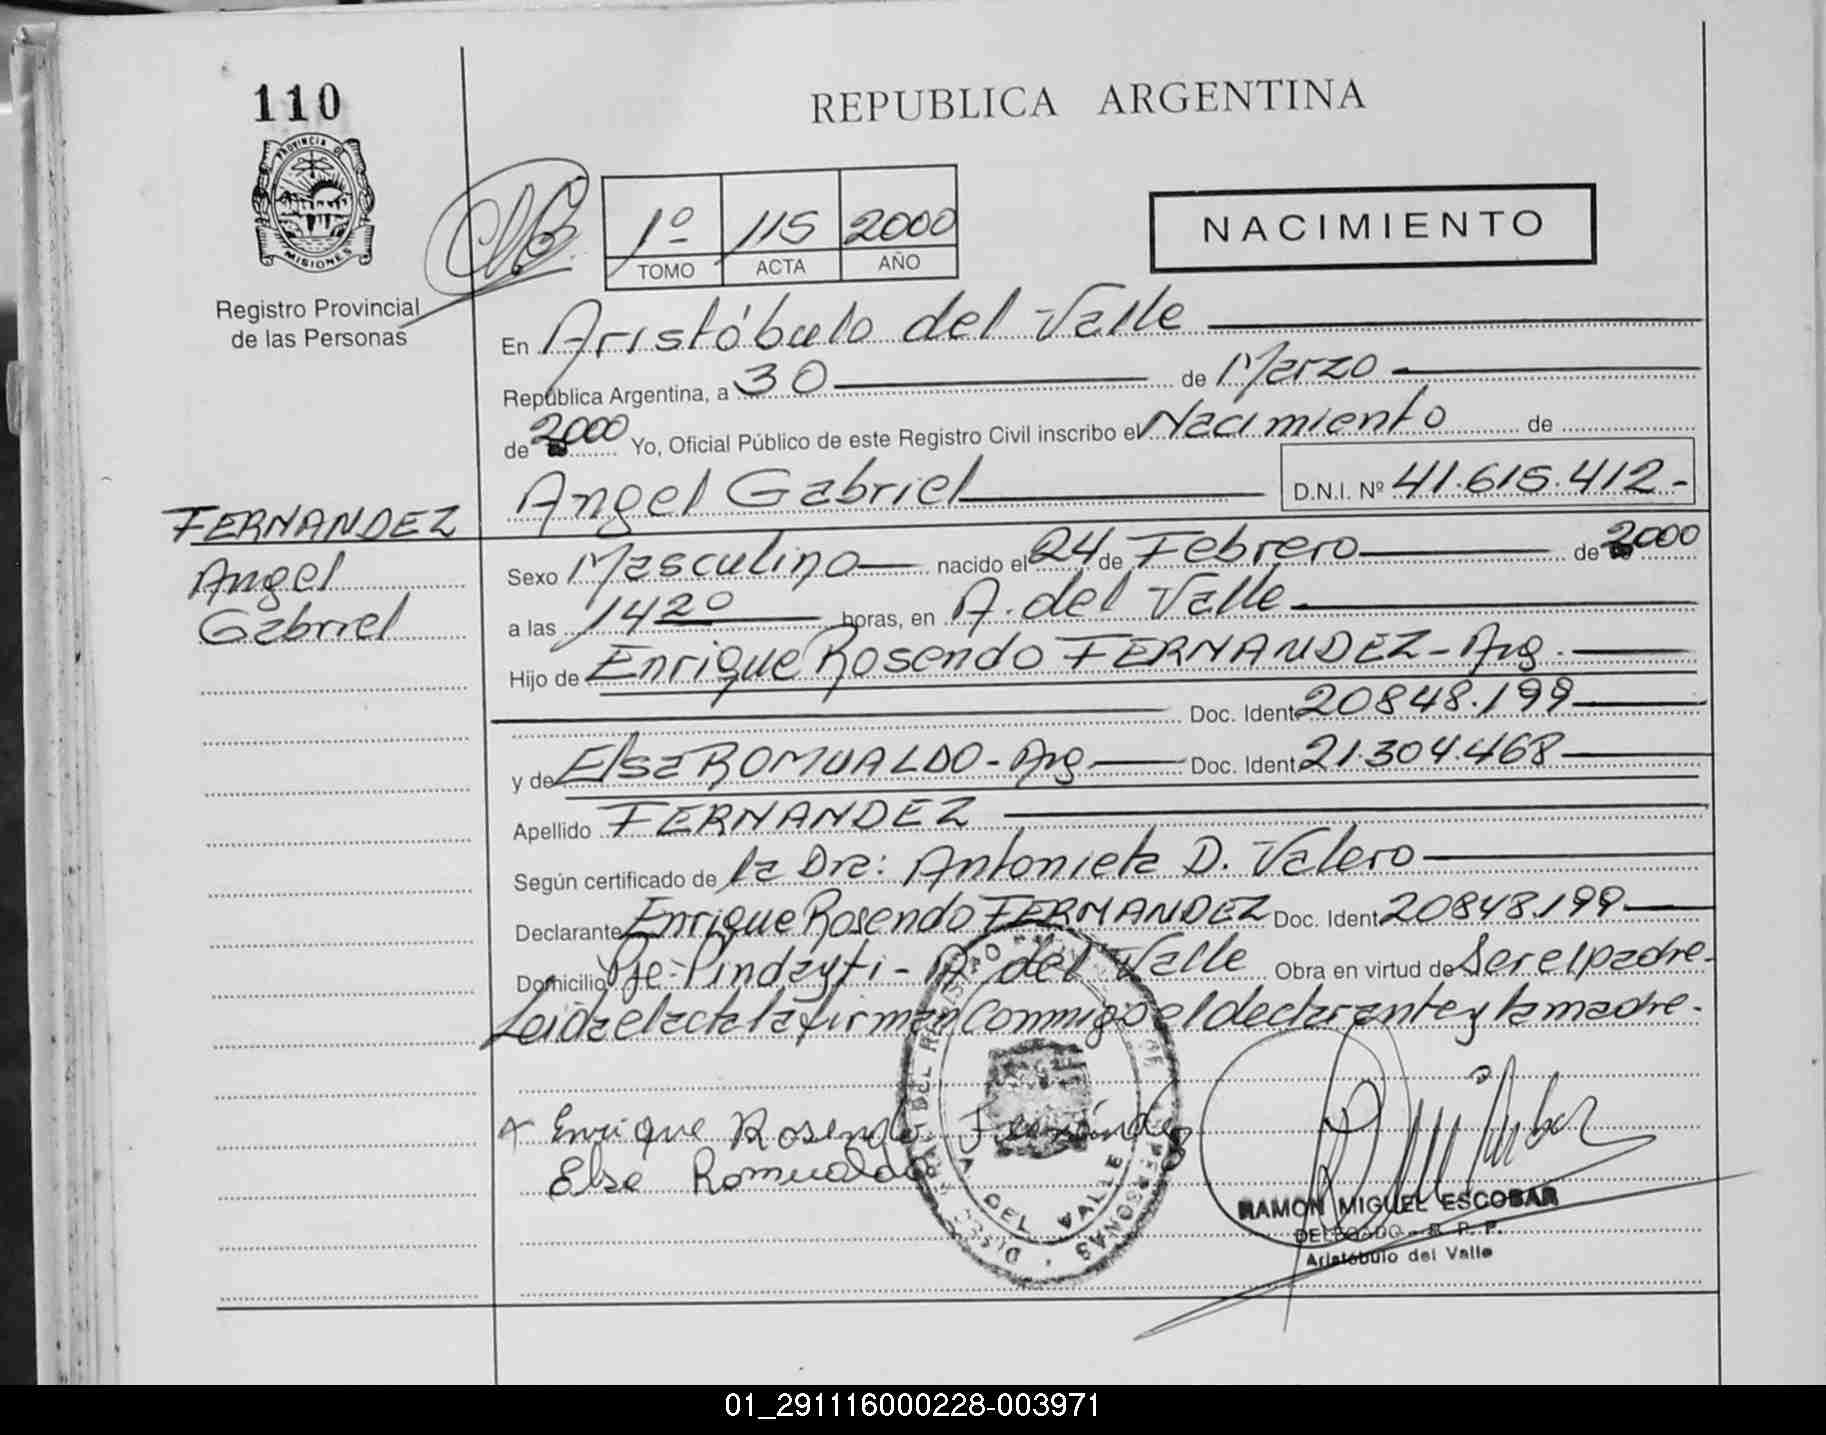 110
REPUBLICA ARGENTINA
PROVINCIA DE
MISIONES
Registro Provincial
de las Personas
1º 115 2000
TOMO ACTA AÑO
NACIMIENTO
En Aristóbulo del Valle
República Argentina, a 30 de Marzo
de 2000 Yo, Oficial Público de este Registro Civil inscribo el Nacimiento de
Angel Gabriel D.N.I. Nº 41.615.412.-
FERNANDEZ
Angel
Gabriel
Sexo Masculino nacido el 24 de Febrero de 2000
a las 14 20 horas, en A. del Valle
Hijo de Enrique Rosendo FERNANDEZ - Arg.
Doc. Ident 20848.199
y de Elsa ROMUALDO - Arg Doc. Ident 21.304.468
Apellido FERNANDEZ
Según certificado de la Dra: Antonieta D. Valero
Declarante Enrique Rosendo FERNANDEZ Doc. Ident 20848.199
Domicilio Pje - Pindayti - A. del Valle Obra en virtud de Ser el padre.
Leida el acta la firman Conmigo el declarante y la madre.
Enrique Rosendo Fernández
Elsa Romualdo
A DEL VALLE
RAMON MIGUEL ESCOBAR
DELEGADO - R. P. P.
Aristóbulo del Valle
01_291116000228-003971